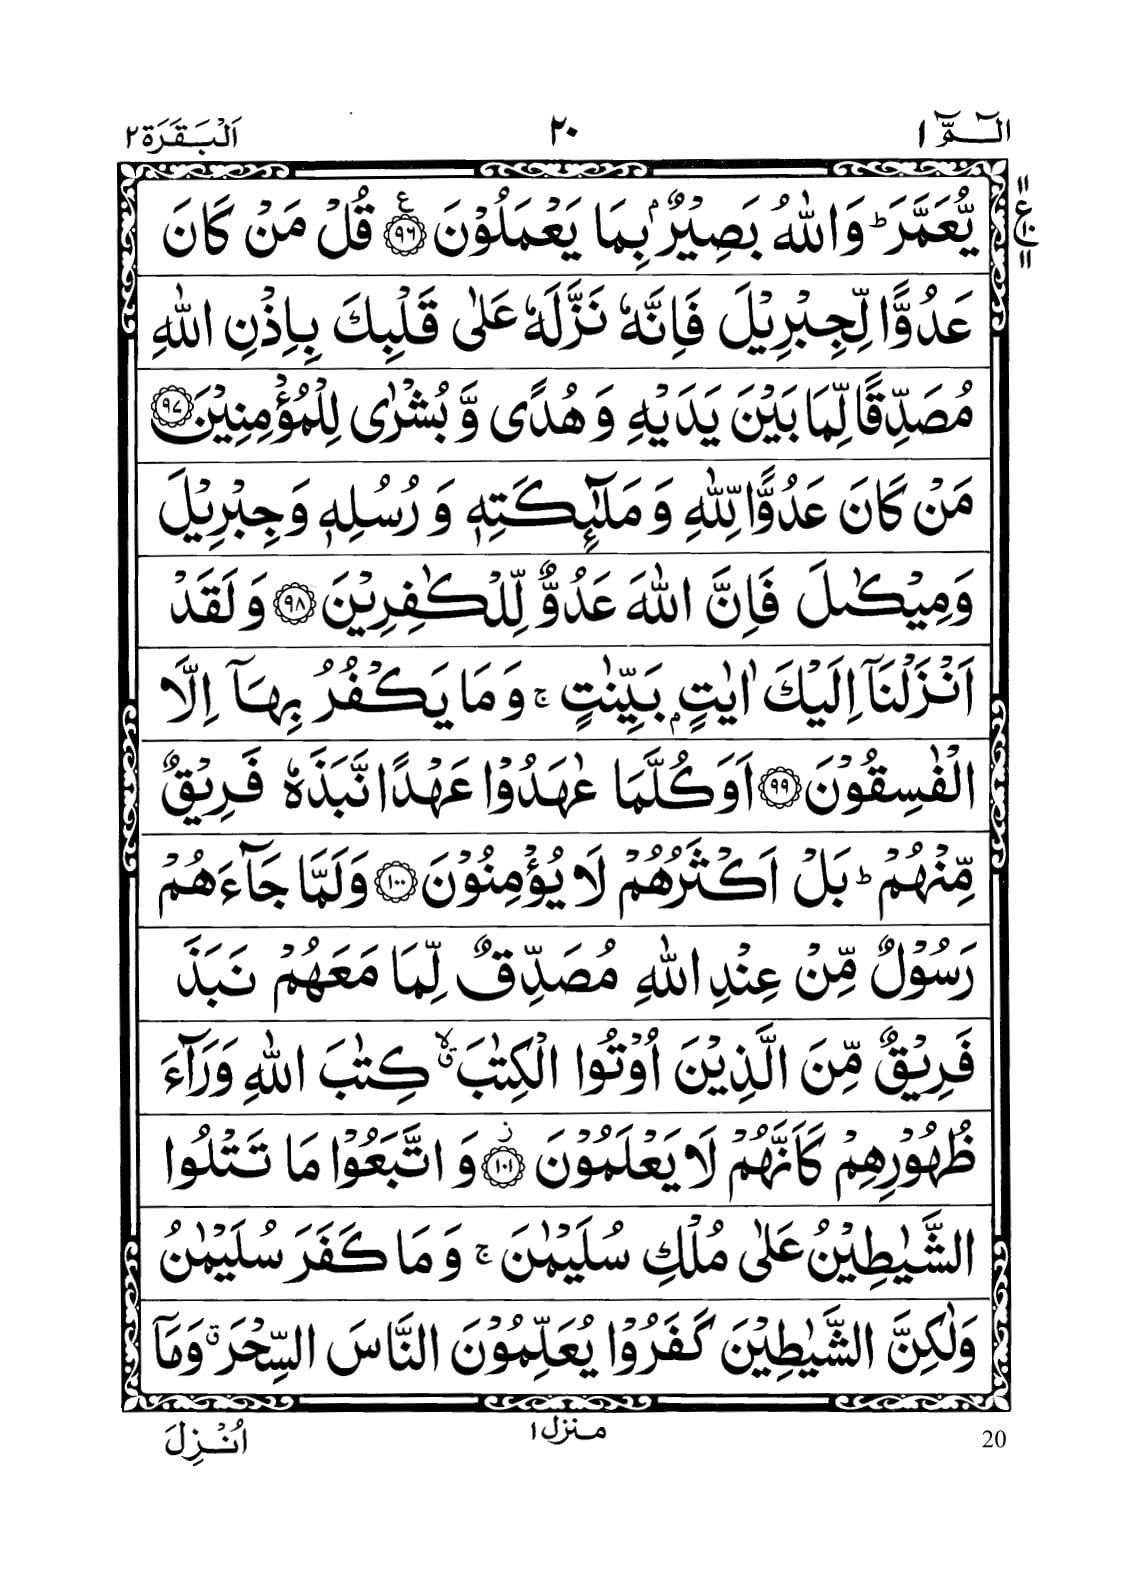 الٓمّٓ ١ ٢٠ اَلْبَقَرَة ٢
يُّعَمَّرَ ؕ وَاللّٰهُ بَصِيْرٌۢ بِمَا يَعْمَلُوْنَ ۧ‏﴿۹۶﴾ قُلْ مَنْ كَانَ
ع ١٠ ١١ ١١
عَدُوًّا لِّجِبْرِيْلَ فَاِنَّهٗ نَزَّلَهٗ عَلٰى قَلْبِكَ بِاِذْنِ اللّٰهِ
مُصَدِّقًا لِّمَا بَيْنَ يَدَيْهِ وَهُدًى وَّبُشْرٰى لِلْمُؤْمِنِيْنَ ﴿۹۷﴾
مَنْ كَانَ عَدُوًّا لِّلّٰهِ وَمَلٰٓئِكَتِهٖ وَرُسُلِهٖ وَجِبْرِيْلَ
وَمِيْكٰىلَ فَاِنَّ اللّٰهَ عَدُوٌّ لِّلْكٰفِرِيْنَ ﴿۹۸﴾ وَلَقَدْ
اَنْزَلْنَاۤ اِلَيْكَ اٰيٰتٍۭ بَيِّنٰتٍ ۚ وَمَا يَكْفُرُ بِهَاۤ اِلَّا
الْفٰسِقُوْنَ ﴿۹۹﴾ اَوَكُلَّمَا عٰهَدُوْا عَهْدًا نَّبَذَهٗ فَرِيْقٌ
مِّنْهُمْ ؕ بَلْ اَكْثَرُهُمْ لَا يُؤْمِنُوْنَ ﴿۱۰۰﴾ وَلَمَّا جَآءَهُمْ
رَسُوْلٌ مِّنْ عِنْدِ اللّٰهِ مُصَدِّقٌ لِّمَا مَعَهُمْ نَبَذَ
فَرِيْقٌ مِّنَ الَّذِيْنَ اُوْتُوا الْكِتٰبَ ۙۗ كِتٰبَ اللّٰهِ وَرَآءَ
ظُهُوْرِهِمْ كَاَنَّهُمْ لَا يَعْلَمُوْنَ ؗ‏﴿۱۰۱﴾ وَاتَّبَعُوْا مَا تَتْلُوا
الشَّيٰطِيْنُ عَلٰى مُلْكِ سُلَيْمٰنَ ۚ وَمَا كَفَرَ سُلَيْمٰنُ
وَلٰكِنَّ الشَّيٰطِيْنَ كَفَرُوْا يُعَلِّمُوْنَ النَّاسَ السِّحْرَ ۗ وَمَاۤ
اُنْزِلَ منزل ١ 20